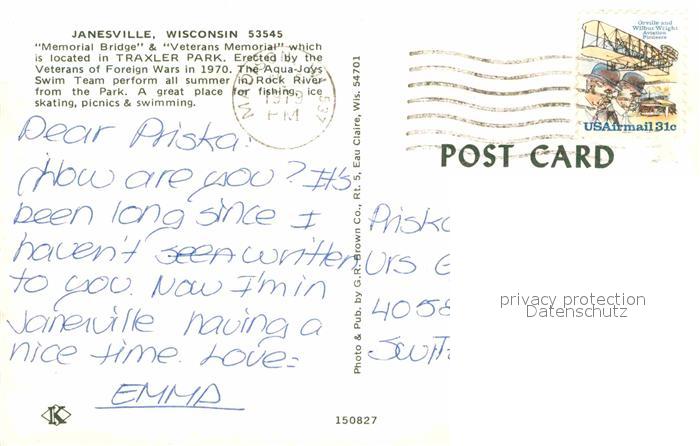 JANESVILLE, WISCONSIN 53545
"Memorial Bridge" & "Veterans Memorial" which
is located in TRAXLER PARK. Erected by the
Veterans of Foreign Wars in 1970. The Aqua-Jays
Swim Team perform all summer in Rock River
from the Park. A great place for fishing, ice
skating, picnics & swimming.
1979
PM
Dear Priska:
How are you? It's
been long since I
haven't seen written
to you. Now I'm in
Janesville having a
nice time. Love:
EMMA
K
Photo & Pub. by G.R. Brown Co., Rt. 5, Eau Claire, Wis. 54701
150827
Orville and
Wilbur Wright
Aviation
Pioneers
USAirmail 31c
POST CARD
Priska
Urs
4058
privacy protection
Datenschutz